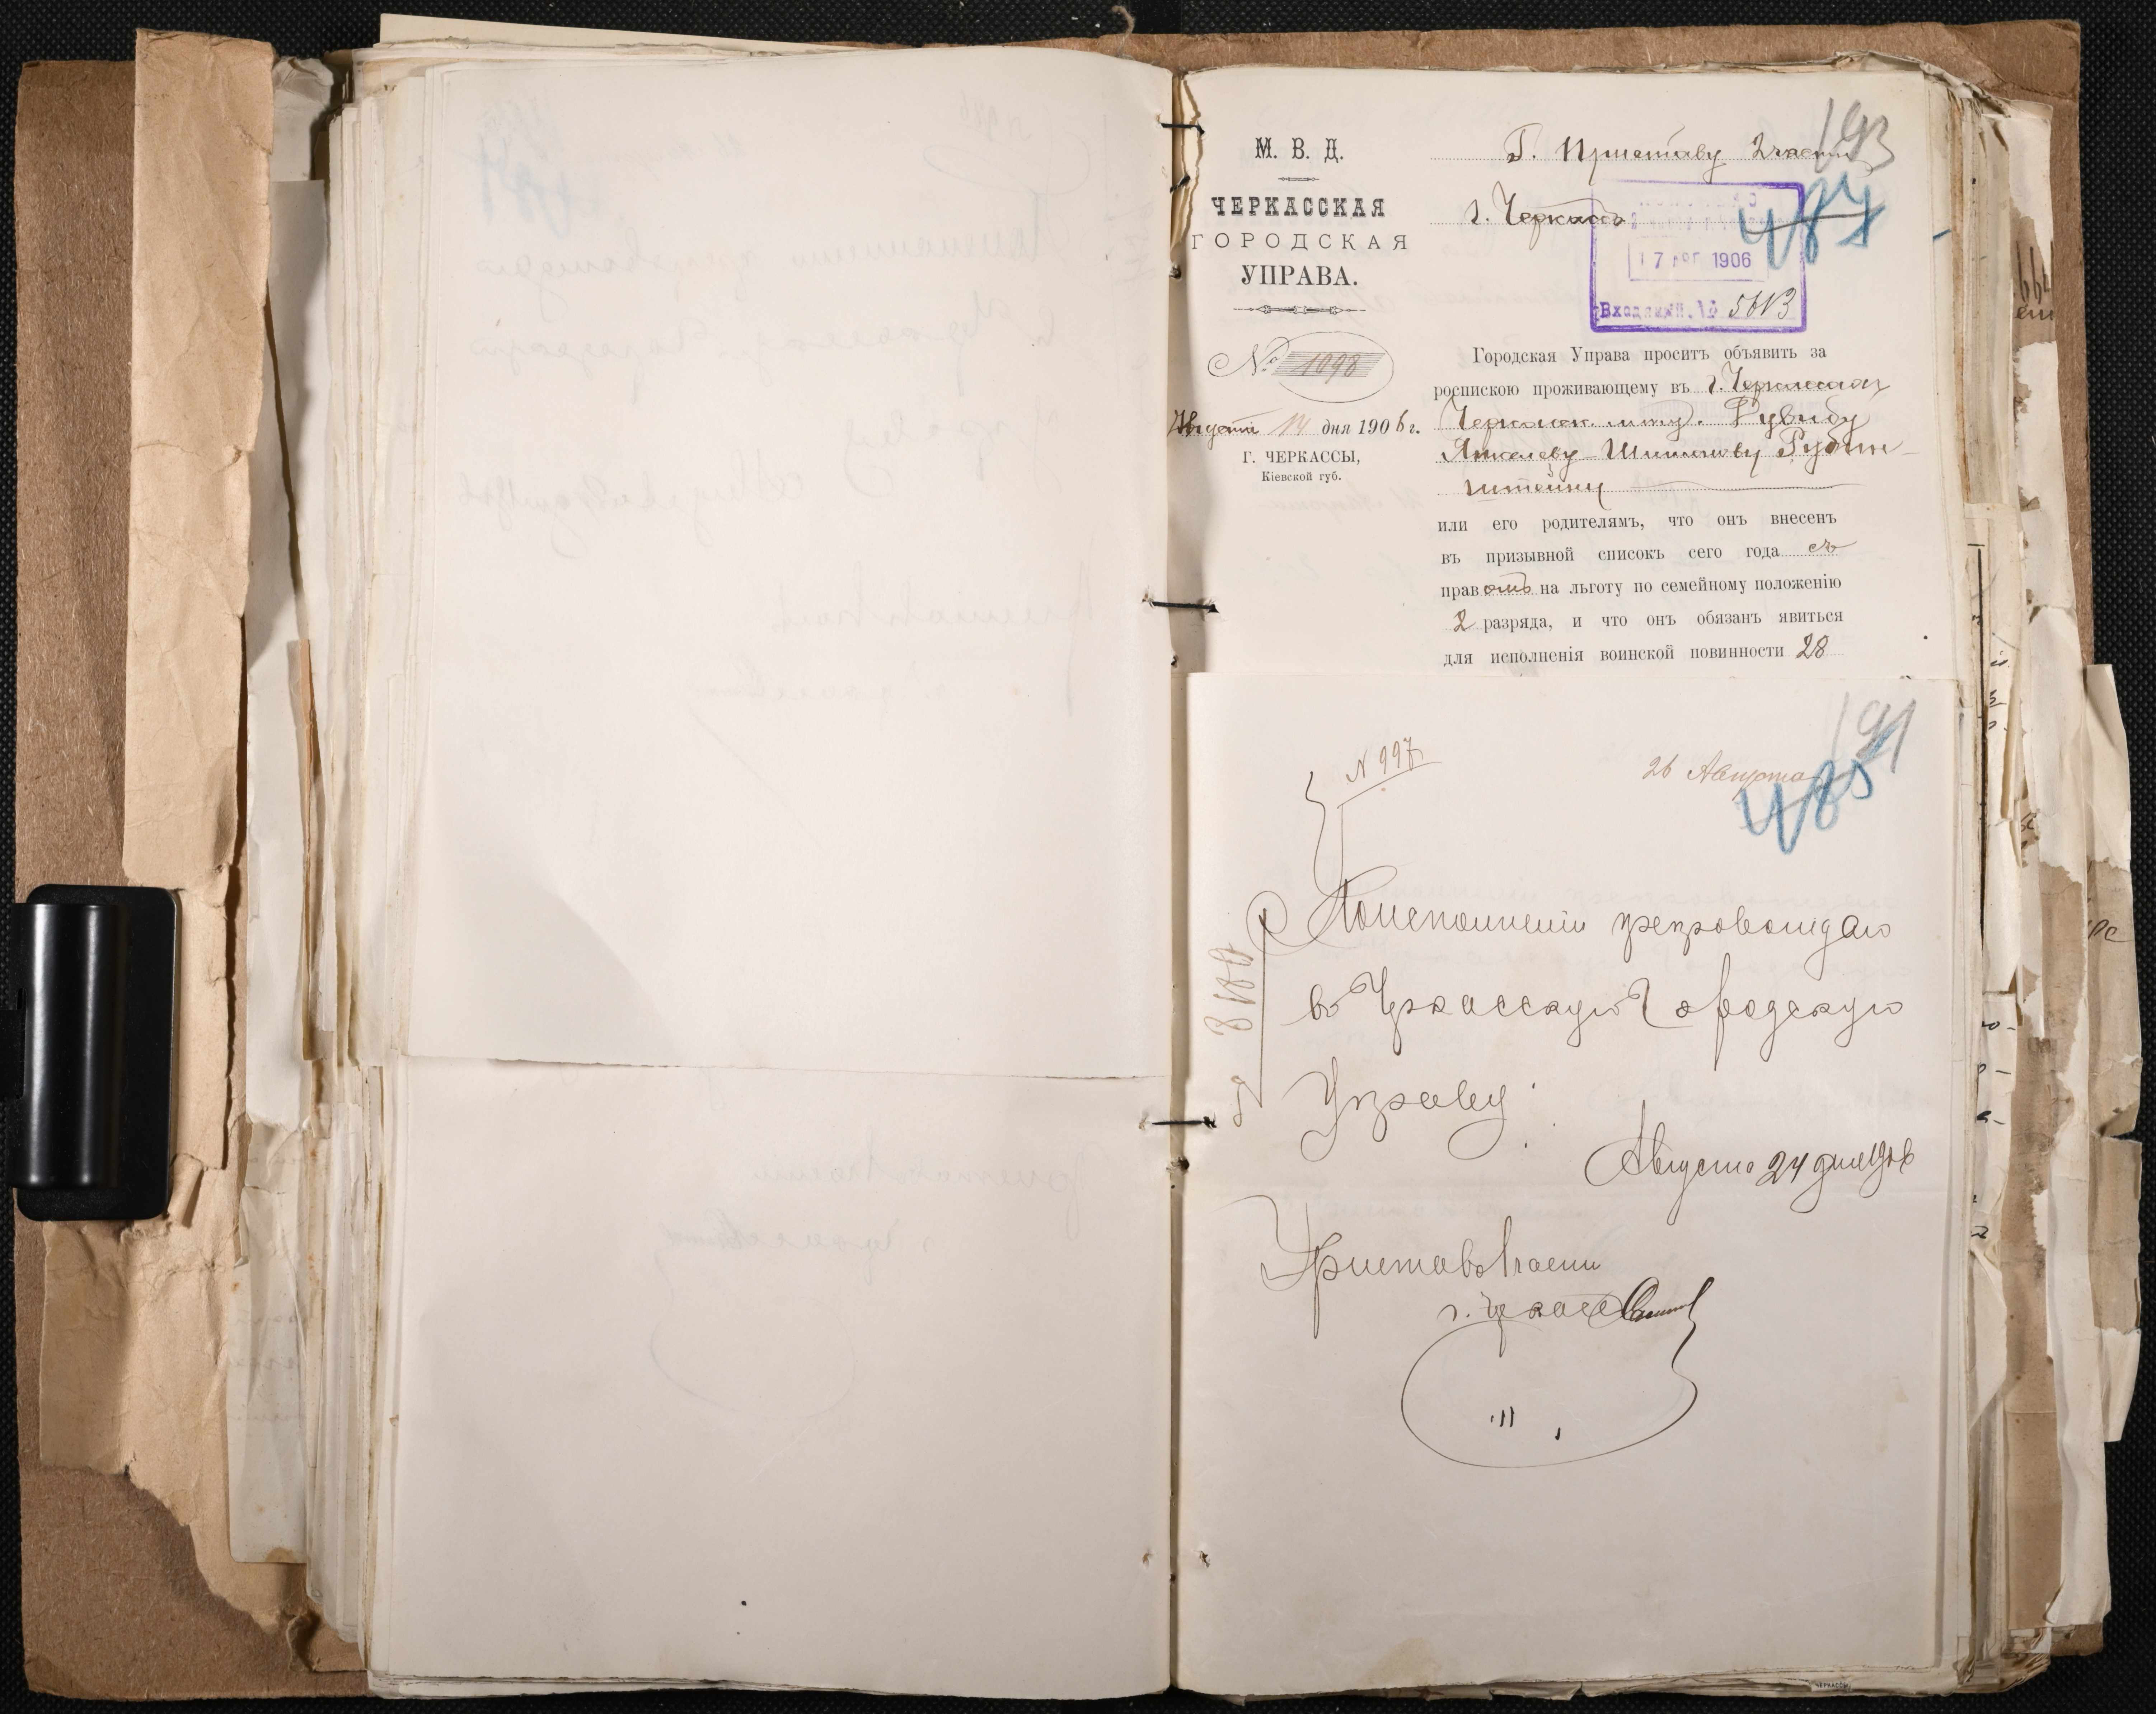 М. В. Д.
ЧЕРКАССКАЯ
ГОРОДСКАЯ
УПРАВА.
№ 1098
Августа 14 дня 1906 г.
Г. ЧЕРКАССЫ,
Кіевской губ.
193
Г. Приставу 2 части
г. Черкассъ
487
17 АВГ 1906
Входящій. №
Городская Управа проситъ объявить за
роспискою проживающему въ г. Черкассахъ
Черкасск. мѣщ. Рувиду
Янкелеву-Шимонову Рубин-
штейну
или его родителямъ, что онъ внесенъ
въ призывной списокъ сего года съ
правомъ на льготу по семейному положенію
2 разряда, и что онъ обязанъ явиться
для исполненія воинской повинности 28
191
N 997
26 Августа
485
По исполненіи препровождаю
въ Черкасскую Городскую
Управу.
Августа 24 дня 1906
Приставъ части
г. Черкассъ